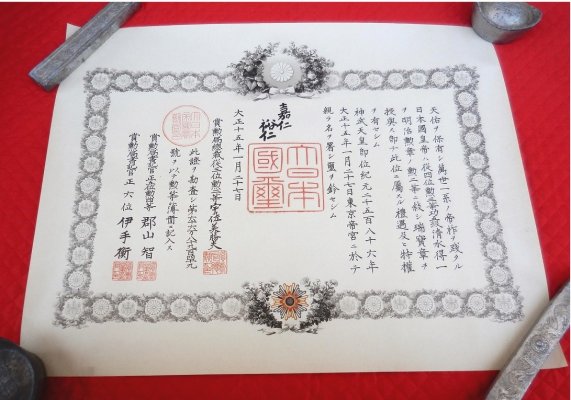 天佑ヲ保有シ萬世一系ノ帝祚ヲ践タル
日本國皇帝ハ從四位勲三等功 級清水得一
ヲ明治勲章ノ勲二等ニ叙シ瑞寶章ヲ
授與ス即チ此位ニ屬スル禮遇及ヒ特權
ヲ有セシム
神武天皇即位紀元二千五百八十六年
大正十五年一月二十七日東京帝宮ニ於テ
親ラ名ヲ署シ璽ヲ鈐セシム
嘉仁
裕仁
大日本
國璽
大正十五年一月二十七日
賞勲局總裁從二位勲二等宇佐美勝夫
此證ヲ勘査シ第 號ヲ以テ勲等簿冊ニ記入ス
賞勲局書記官正五位勲四等 郡山 智
賞勲局書記官 正六位 伊手 衡